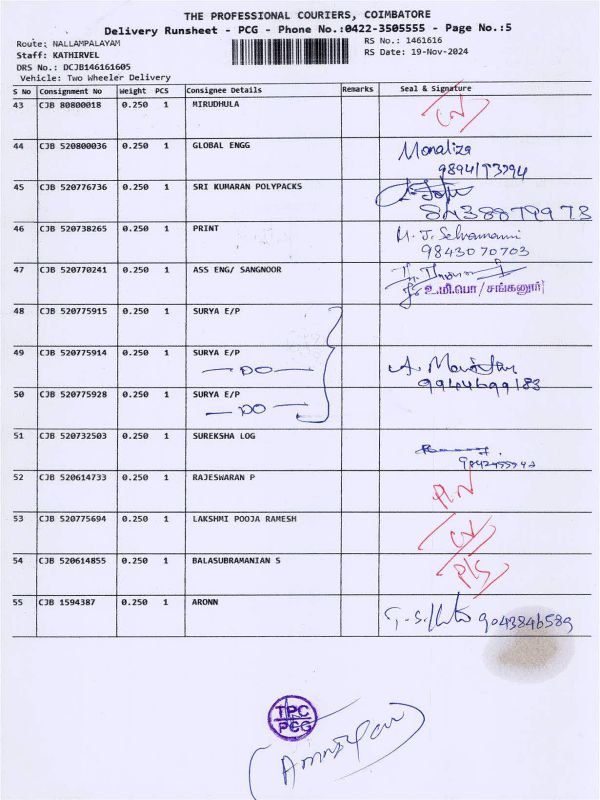 THE PROFESSIONAL COURIERS, COIMBATORE
Delivery Runsheet - PCG - Phone No.:0422-3505555 - Page No.:5
Route: NALLAMPALAYAM
RS No.: 1461616
Staff: KATHIRVEL
RS Date: 19-Nov-2024
DRS No.: DCJB146161605
Vehicle: Two Wheeler Delivery
S No Consignment No Weight PCS Consignee Details Remarks Seal & Signature
43 CJB 80800018 0.250 1 MIRUDHULA
44 CJB 520800036 0.250 1 GLOBAL ENGG Monaliza
45 CJB 520776736 0.250 1 SRI KUMARAN POLYPACKS
46 CJB 520738265 0.250 1 PRINT M. J. Selvamani
9843070703
47 CJB 520770241 0.250 1 ASS ENG/ SANGNOOR
உ.மி.பொ/சங்கனூர்
48 CJB 520775915 0.250 1 SURYA E/P
49 CJB 520775914 0.250 1 SURYA E/P
DO
9944699183
50 CJB 520775928 0.250 1 SURYA E/P
DO
51 CJB 520732503 0.250 1 SUREKSHA LOG
52 CJB 520614733 0.250 1 RAJESWARAN P
53 CJB 520775694 0.250 1 LAKSHMI POOJA RAMESH
54 CJB 520614855 0.250 1 BALASUBRAMANIAN S P/S
55 CJB 1594387 0.250 1 ARONN 9043846589
TPC
PCG